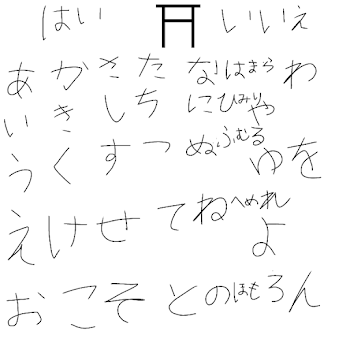 はい いいえ
あ か さ た な は ま ら わ
い き し ち に ひ み り や
う く す つ ぬ ふ む る ゆ を
え け せ て ね へ め れ よ
お こ そ と の ほ も ろ ん